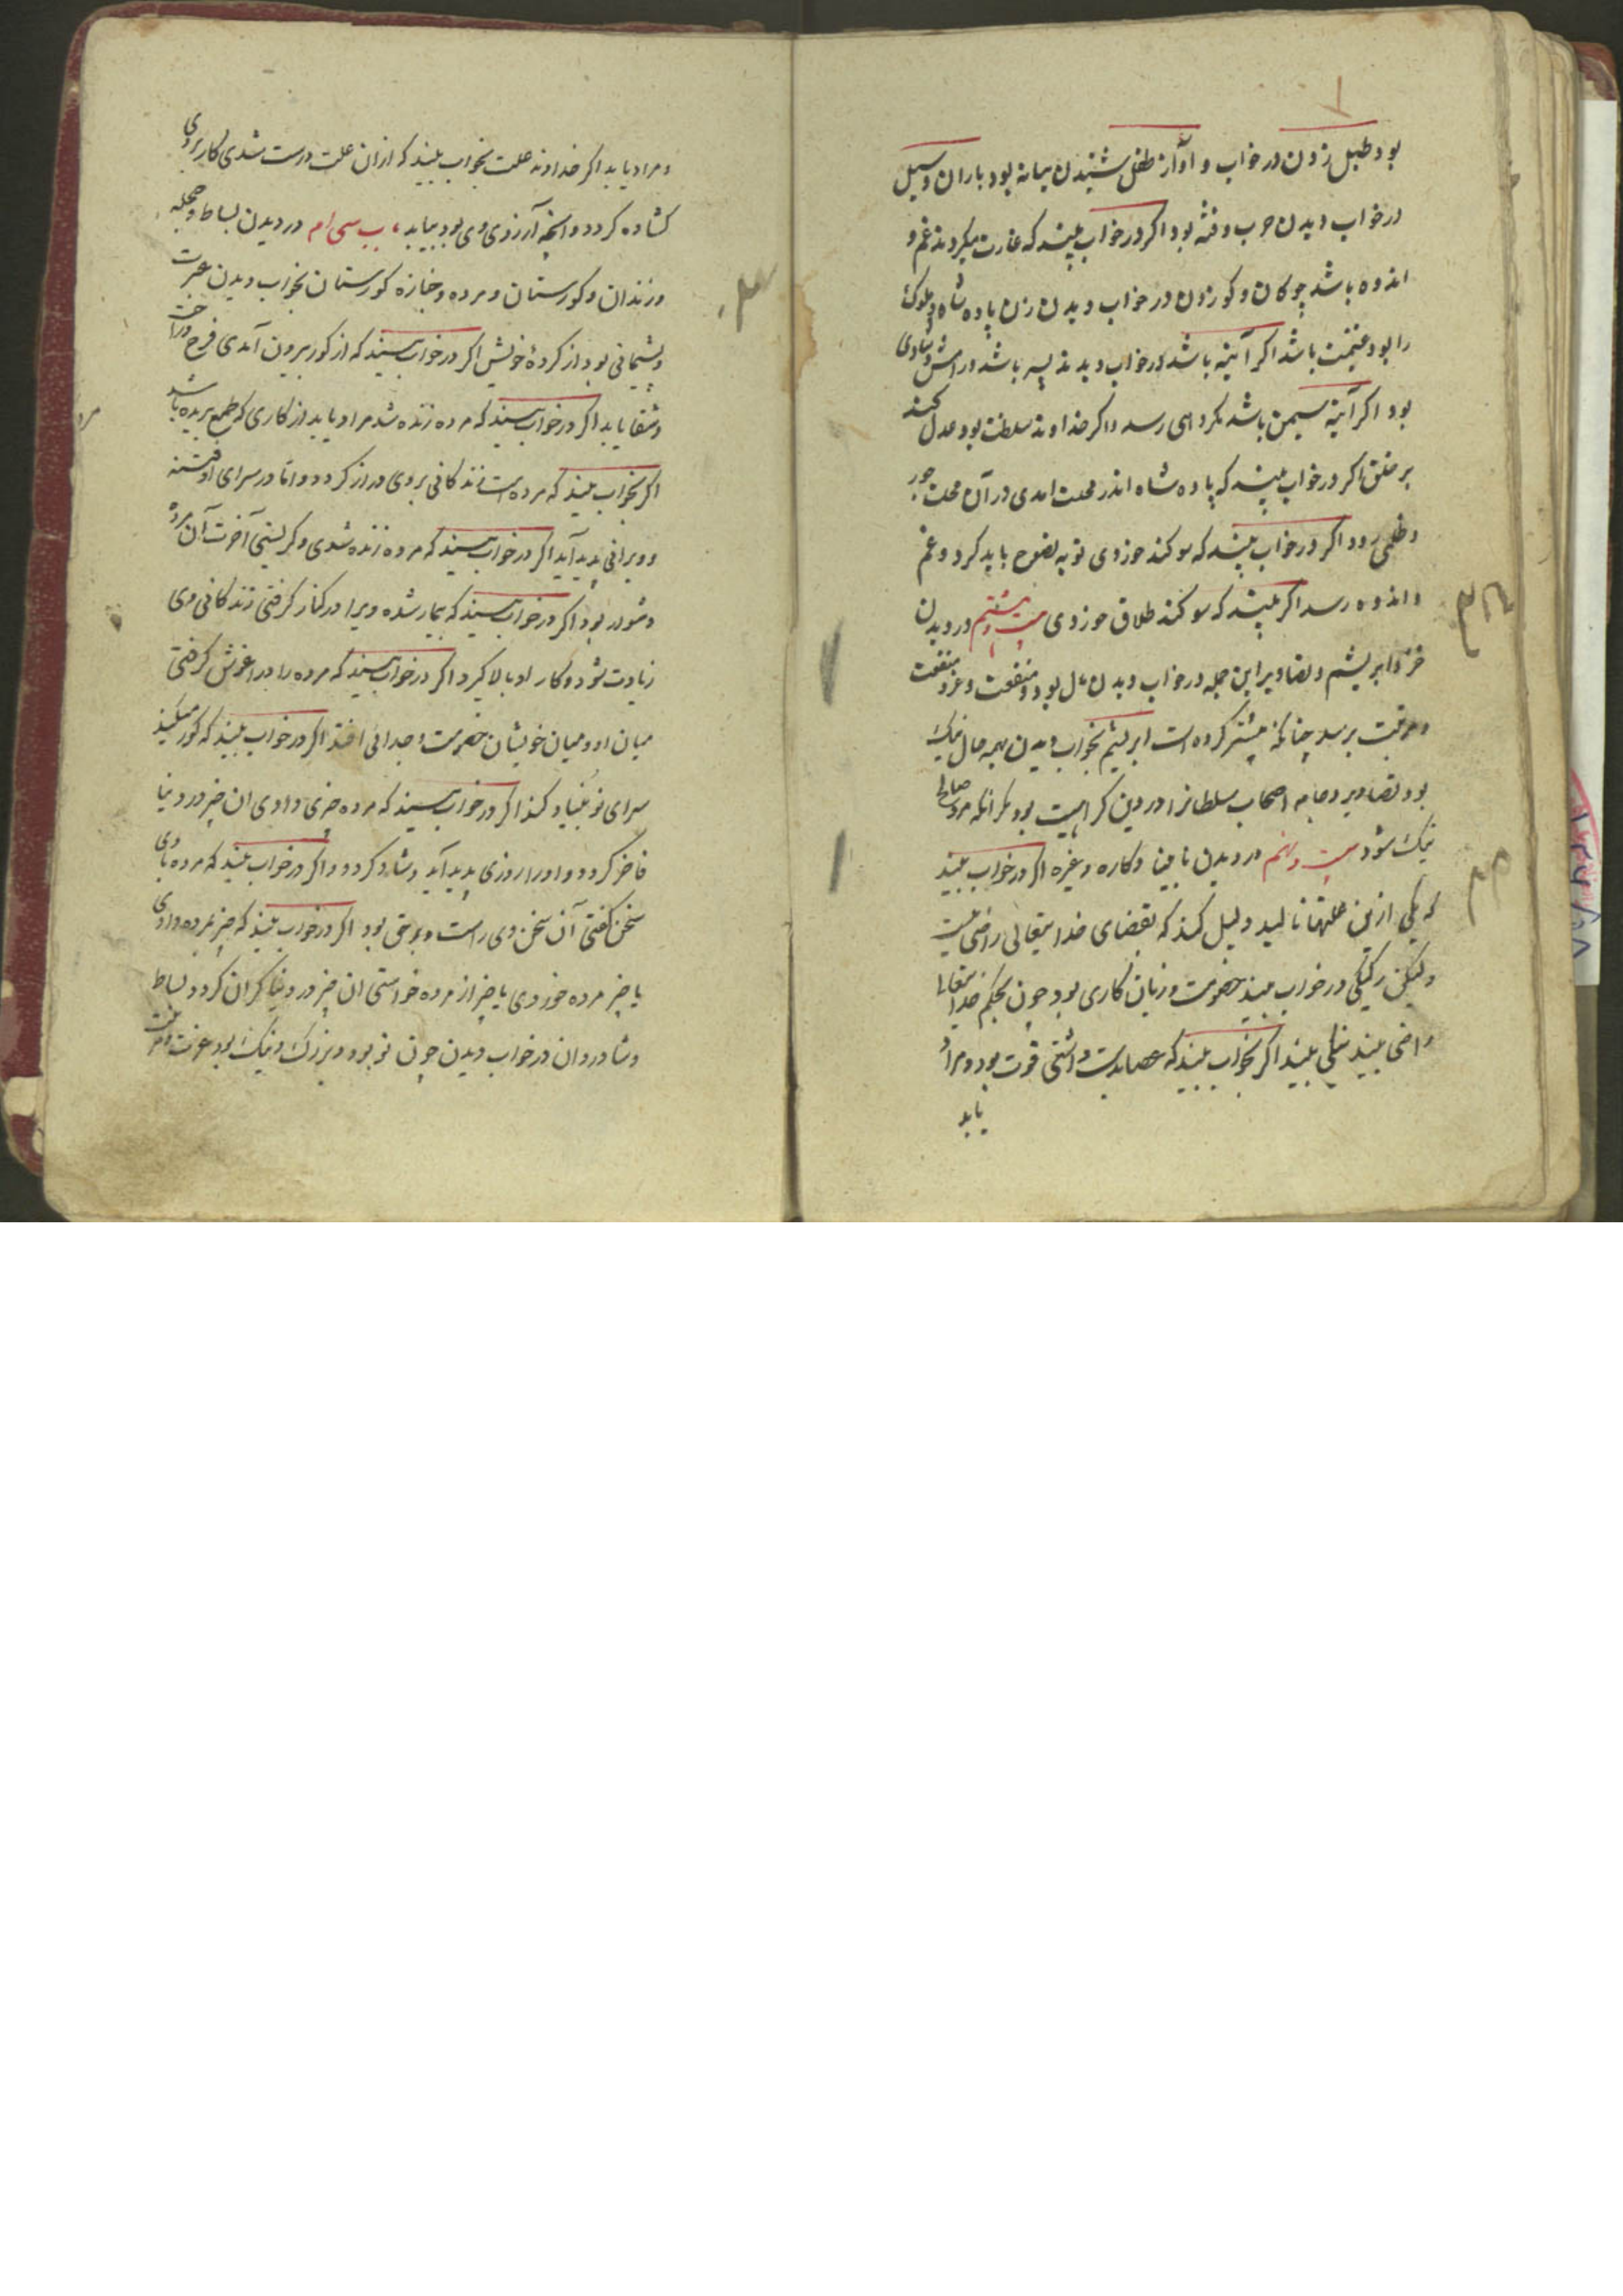 بود طبل زدن در خواب و آواز طفل شنیدن بیمانه بود باران و سیل
در خواب دیدن حرب و فتنه بود اکر در خواب بیند که غارت میکردند غم و
اندوه باشد چوکان و کوی زدن در خواب دیدن زن پادشاه و ملوک
را بود غنیمت باشد اکر آینه باشد در خواب دیدند پسر باشد و رامش و شادی
بود اکر آینه سیمین باشد مکروهی رسد و اکر خداوند سلطنت بود عدل کند
بر خلق اکر در خواب بیند که پادشاه اندر محلت امدی در آن محلت جور
و ظلمی رود اکر در خواب بیند که سوکند خوردی توبه نصوح باید کرد و غم
و اندوه رسد اکر بیند که سوکند طلاق خوردی بیست و هشتم در دیدن
خز و ابریشم و تصاویر این جمله در خواب دیدن مال بود و منفعت و عز و منفعت
و مرتبت برسد چنانکه پیشتر کرده است ابریشم بخواب دیدن بهمه حال نیک
بود تصاویر و جامه اصحاب سلطانرا در دین کراهیت بود مکر آنکه مرد صالح
نیک شود بیست و نهم در دیدن نابینا و کاره و غیره اکر در خواب بیند
که یکی ازین علتها نالید دلیل کند که بقضای خدایتعالی راضی نیست
ولیکن در خواب بیند خصومت و زیان کاری بود چون بحکم خدایتعالی
راضی بیند نیکی بیند اکر بخواب بیند که عصا بدست داشتی قوت بود و مراد
یابد
و مراد یابد اکر خداوند علت بخواب بیند که ازان علت درست شدی کار بروی
کشاده کردد و آنچه آرزوی وی بود بیابد باب سی ام در دیدن بساط و حجله
و زندان و کورستان و مرده و جنازه کورستان بخواب دیدن عبرت
و پشیمانی بود از کردهٔ خویش اکر در خواب بیند که از کور بیرون آمدی فرح و راحت
و شفا یابد اکر در خواب بیند که مرده زنده شد مراد یابد از کاری که طمع بریده باشد
اکر بخواب بیند که مرده است زندکانی بروی دراز کردد و اما در سرای او فتنه
و ویرانی پدید آید اکر در خواب بیند که مرده زنده شدی و کریستی آخرت آن مرده
و شور بود اکر در خواب بیند که بیمار شده ویرا در کنار کرفتی زندکانی وی
زیادت شود و کار او بالا کیرد اکر در خواب بیند که مرده را در اغوش کرفتی
میان او و میان خویشان خصومت و جدائی افتد اکر در خواب بیند که کور میکند
سرای نو بنیاد کند اکر در خواب بیند که مرده چیزی دادی ان چیز در دنیا
فاخر کردد و او را روزی پدید آید و شاد کردد و اکر در خواب بیند که مرده با وی
سخن کفتی آن سخن وی راست و بر حق بود اکر در خواب بیند که چیز بمرده دادی
یا چیز مرده خوردی یا چیز از مرده خواستی ان چیز در دنیا کران کردد بساط
و شادروان در خواب دیدن چون نو بود و بزرک و نیک بود عزت و مرتبت